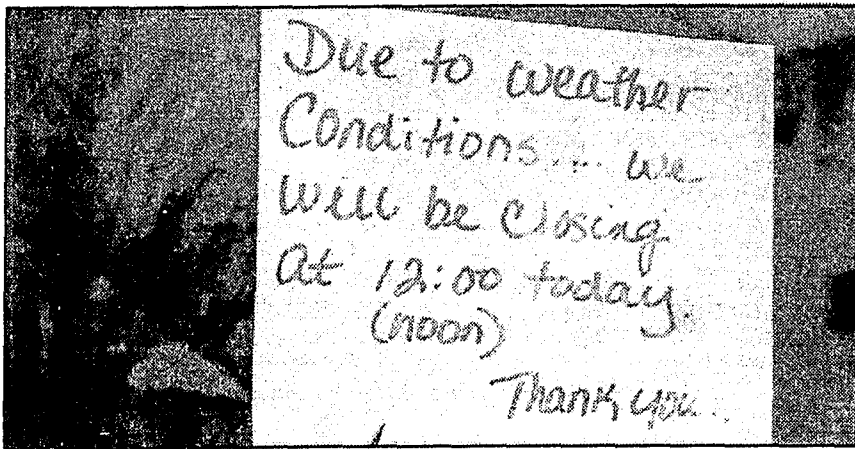 Due to weather
Conditions... we
Will be Closing
At 12:00 today.
(noon)
Thank you...